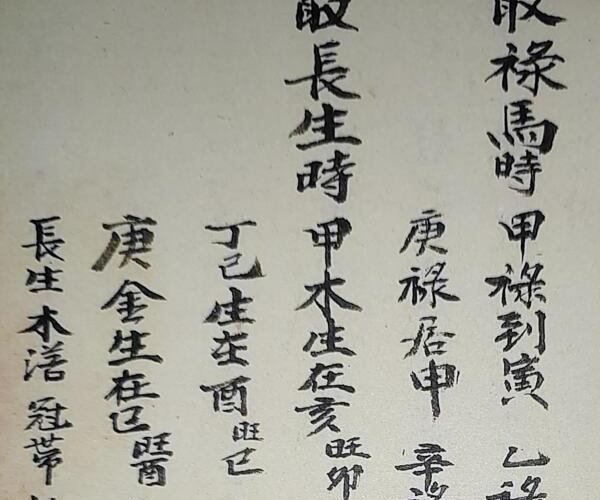 取祿馬時 甲祿到寅 乙祿
庚祿居申 辛祿
取長生時 甲木生在亥旺卯
丁己生在酉旺巳
庚金生在巳旺酉
長生 木浴 冠帶